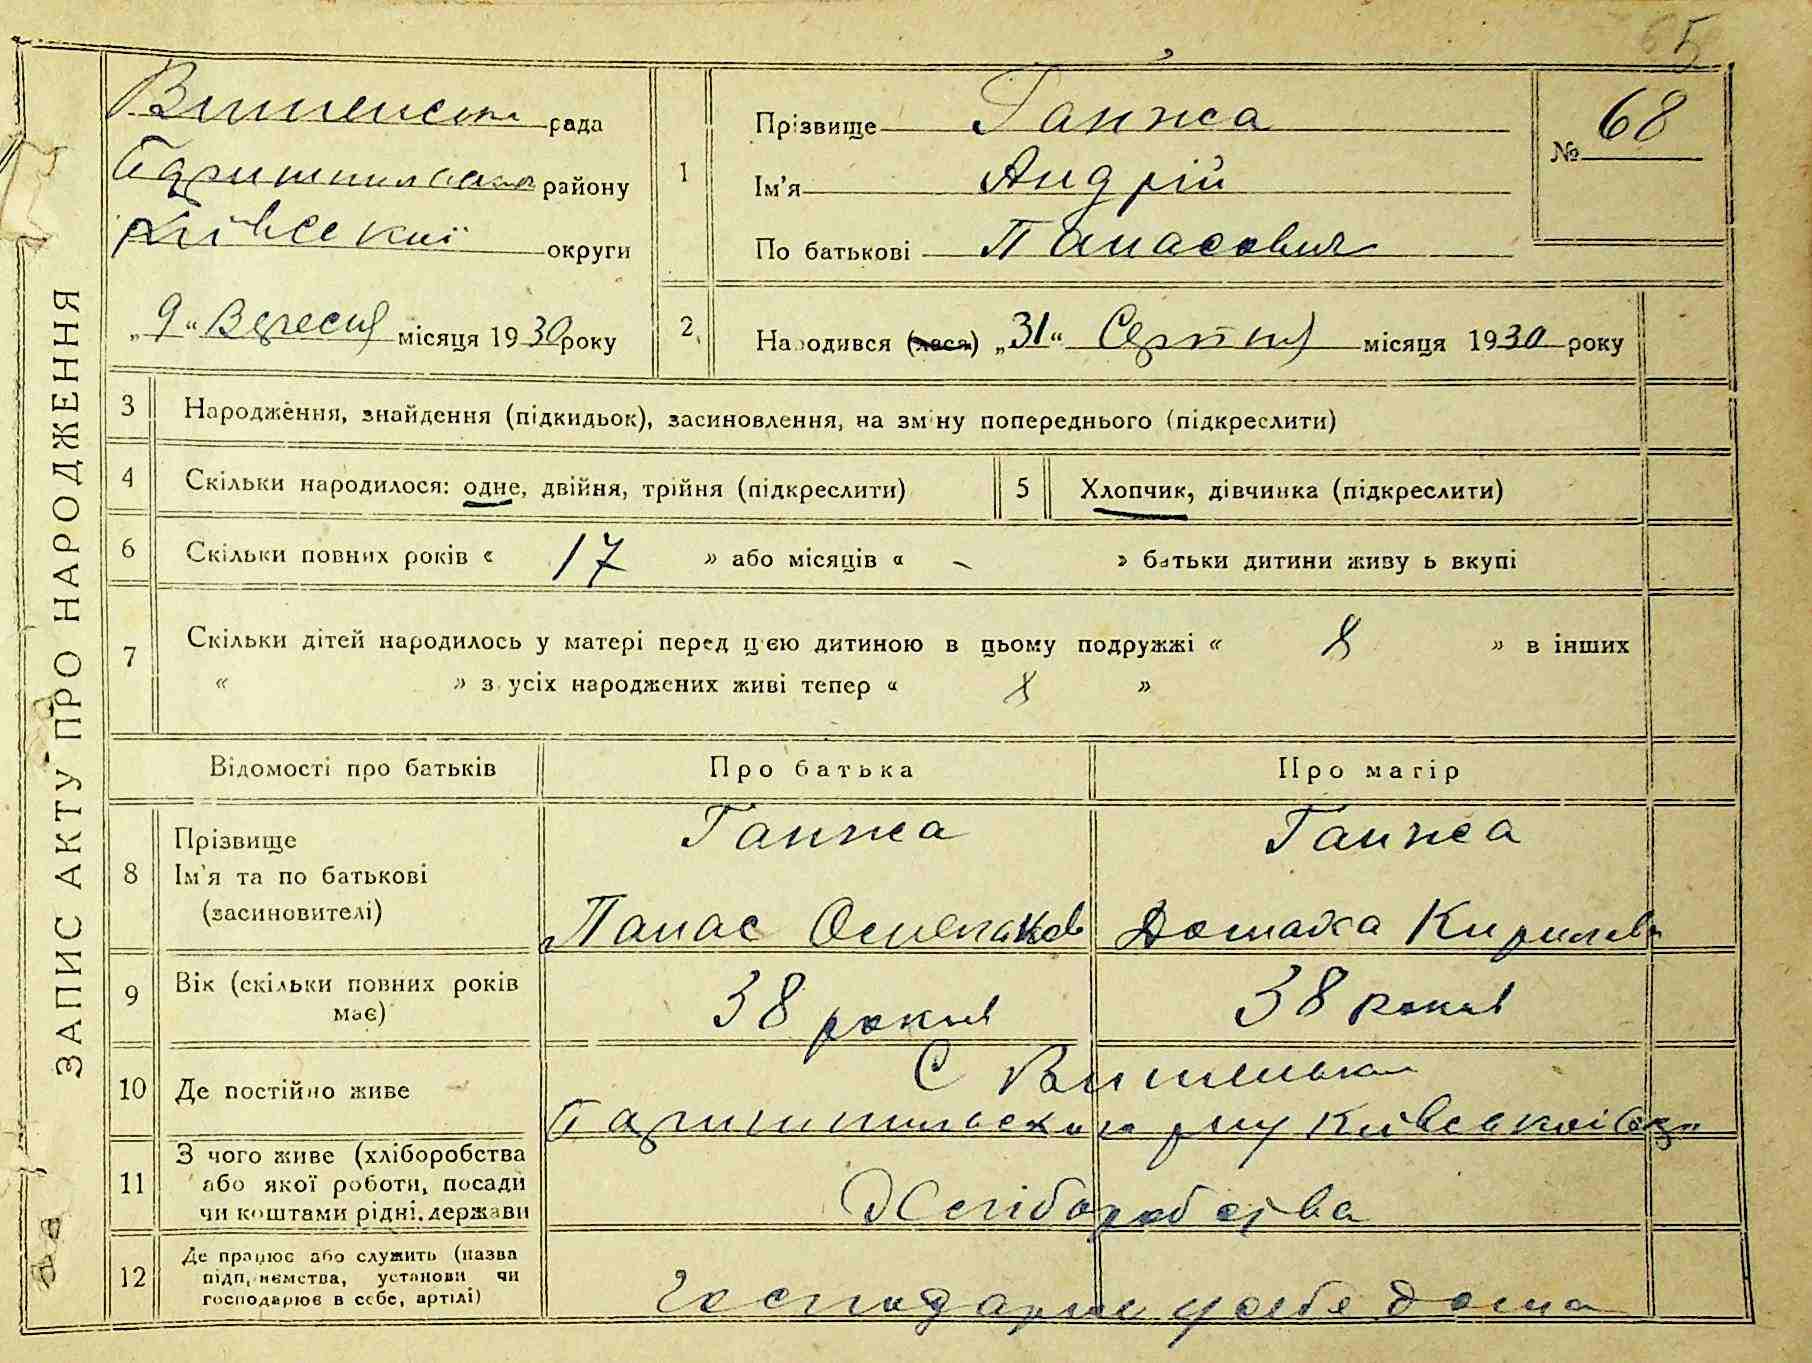 65
ЗАПИС АКТУ ПРО НАРОДЖЕННЯ
Вишенська рада
району
Київської округи
„9“ Вересня місяця 1930 року
1
Прізвище Ганжа
Ім'я Андрій
По батькові Панасович
№ 68
2
Народився (лася) „31“ Серпня місяця 1930 року
3 Народження, знайдення (підкидьок), засиновлення, на зміну попереднього (підкреслити)
4 Скільки народилося: одне, двійня, трійня (підкреслити)
5 Хлопчик, дівчинка (підкреслити)
6 Скільки повних років « 17 » або місяців « - » батьки дитини живуть вкупі
7 Скільки дітей народилось у матері перед цією дитиною в цьому подружжі « 8 » в інших
« » з усіх народжених живі тепер « 8 »
Відомості про батьків Про батька Про матір
8 Прізвище Ганжа Ганжа
Ім'я та по батькові
(засиновителі) Панас Домаха Кирилов
9 Вік (скільки повних років
має) 38 років 38 років
10 Де постійно живе С Вишеньки
р-ну Київської
11 З чого живе (хліборобства
або якої роботи, посади
чи коштами рідні, держави Хліборобства
12 Де працює або служить (назва
підприємства, установи чи
господарює в себе, артілі) Господарює у себе дома